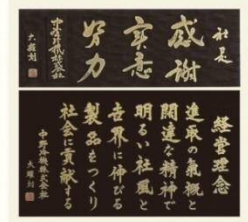 社是
感謝
意
努力
経営理念
進取の氣概と
闊達な精神で
明るい社風と
世界に伸びる
製品をつくり
社会に貢献する
株式会社